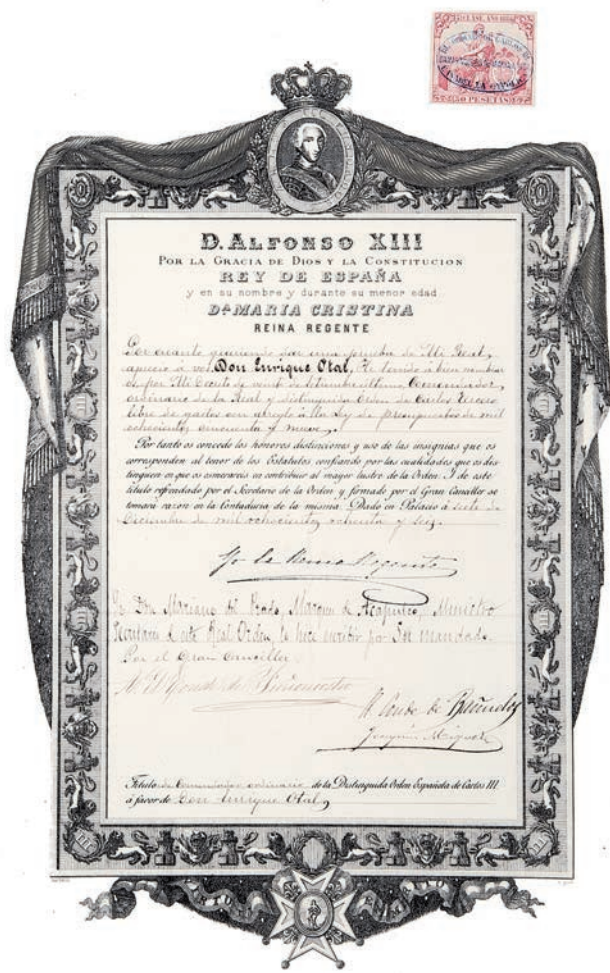 50 PESETAS
D. ALFONSO XIII
POR LA GRACIA DE DIOS Y LA CONSTITUCION
REY DE ESPAÑA
y en su nombre y durante su menor edad
Dª MARIA CRISTINA
REINA REGENTE
Por cuanto queriendo dar una prueba de Mi Real
aprecio a vos Don Enrique Otal, He tenido á bien nombra
os por Mi Decreto de veinte de setiembre último Comendador
ordinario de la Real y distinguida Orden de Carlos Tercero
libre de gastos con arreglo á la ley de presupuestos de mil
ochocientos cincuenta y nueve,
Por tanto os concedo los honores distinciones y uso de las insignias que os
corresponden al tenor de los Estatutos confiando por las cualidades que os dis
tinguen en que os esmerareis en contribuir al mayor lustre de la Orden. Y de este
título refrendado por el Secretario de la Orden y firmado por el Gran Canciller se
tomará razon en la Contaduria de la misma. Dado en Palacio á siete de
Diciembre de mil ochocientos ochenta y seis.
Yo la Reina Regente
Yo Don Mariano del Prado, Marques de Acapulco, Ministro
Secretario de esta Real Orden, lo hice escribir por Su mandado.
Por el Gran Canciller
El Conde de
El Conde de Bañuelos
Joaquin
Título de Comendador ordinario de la Distinguida Orden Española de Carlos III
á favor de Don Enrique Otal,